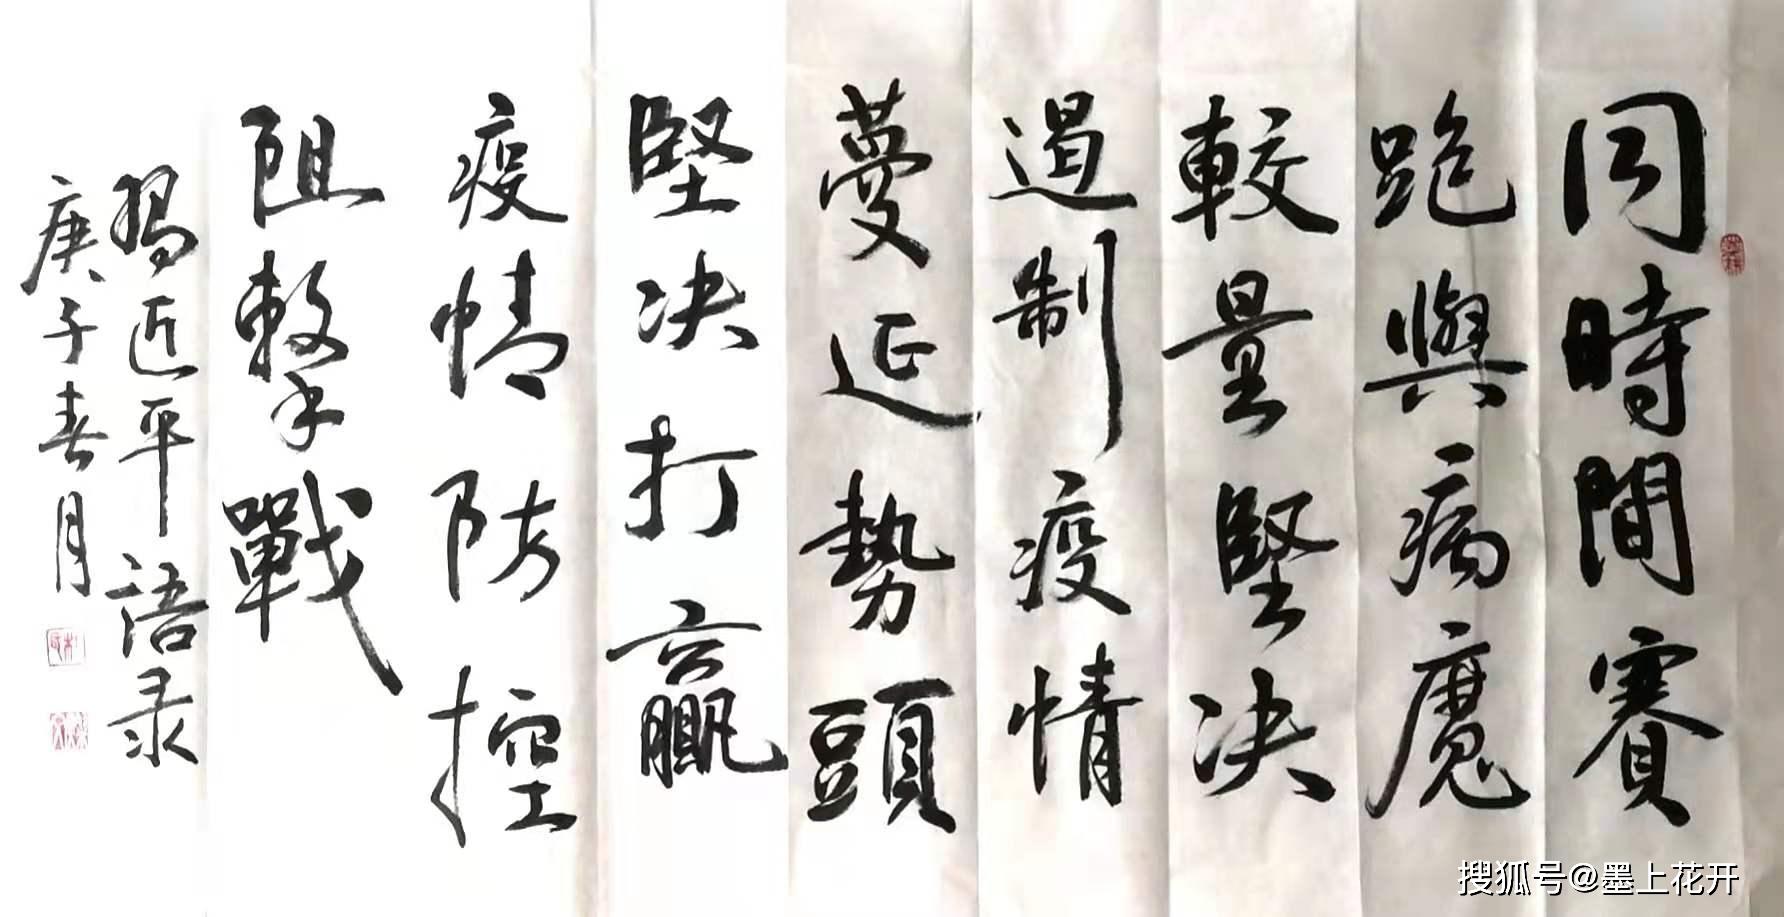 同時間賽
跑與病魔
較量堅决
遏制疫情
蔓延勢頭
堅决打贏
疫情防控
阻擊戰
習近平語录
庚子春月
搜狐号@墨上花开